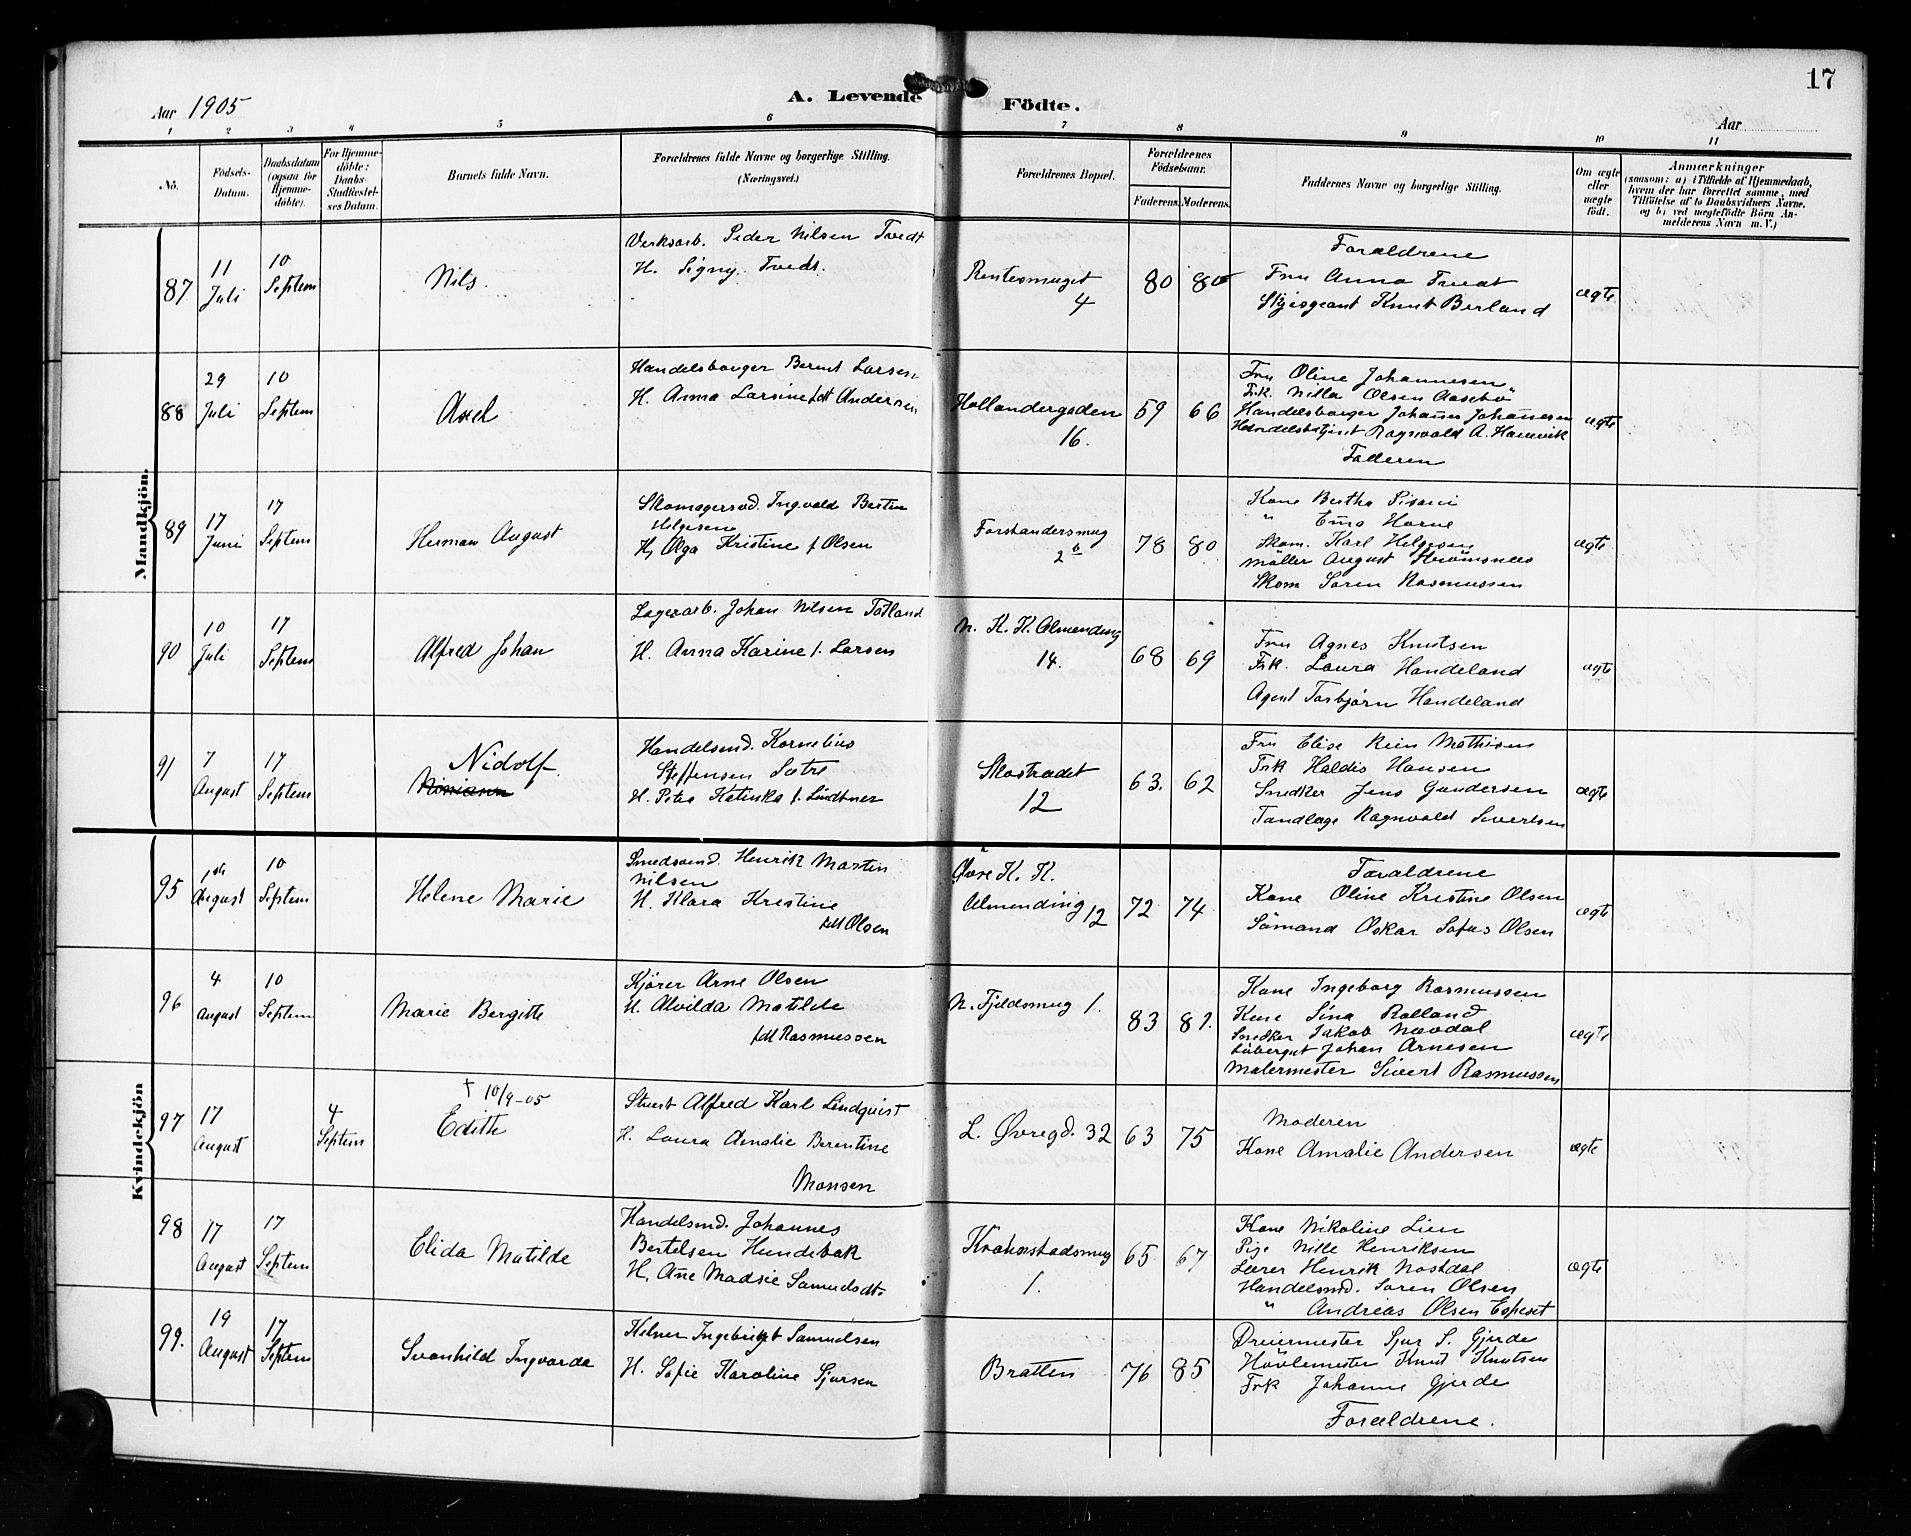 17
Aar 1905
A. Levende Födte.
Aar
1 2 3 4 5 6 7 8 9 10 11
No.
Födsels-Datum.
Daabsdatum (ogsaa for Hjemme-döbte).
For Hjemme-döbte: Daabs-Stadfæstel-ses Datum.
Barnets fulde Navn.
Forældrenes fulde Navne og borgerlige Stilling. (Næringsvei.)
Forældrenes Bopæl.
Forældrenes Födselsaar.
Faderens. Moderens.
Faddernes Navne og borgerlige Stilling.
Om ægte eller uægte födt.
Anmærkninger
(saasom: a) i Tilfælde af Hjemmedaab,
hvem der har forrettet samme, med
Tilföielse af to Daabsvidners Navne,
og b) ved uægtefödte Börn An-
melderens Navn m. V.)
Mandkjön.
87
11 Juli
10 Septem
Nils.
Verksarb. Peder Nilsen Tvedt
H. Signy Tvedt.
Rentesmuget
4
80 80
Forældrene
Fru Anna Tvedt
Knut Berland
ægte
88
29 Juli
10 Septem
Axel
Handelsborger Bernt Larsen
H. Anna Larsine født Andersen
Hollendergaden
16.
59 66
Fru Oline Johannesen
Frk. Nilla Olsen Aasebø
Handelsborger Johannes Johannesen
Handelsbetjent Ragnvald A. Hannevik
Faderen
ægte
89
17 Juni
17 Septem
Herman August
Skomagersvd. Ingvald Bertin
Helgesen
H. Olga Kristine f Olsen
Forstandersmug
2 b
78 80
Kone Bertha Pisani
" Emma Horne
Skom. Karl Helgesen
Møller August Strömsnes
Skom Søren Rasmussen
ægte
90
10 Juli
17 Septem
Alfred Johan
Lagerarb. Johan Nilsen Totland
H. Anna Karine f. Larsen
N. K. K. Almending
14.
68 69
Fru Agnes Knutsen
Frk. Laura Handeland
Agent Torbjørn Handeland
ægte
91
7 August
17 Septem
Nidolf
Handelsmd. Kornelius
Steffensen Sætre
H. Petra Katinka f. Lindtner
Skostrædet
12
63. 62
Fru Elise Rein Mathisen
Frk Haldis Hansen
Snedker Jens Gundersen
Tandlæge Ragnvald Sivertsen
ægte
Kvindekjön
95
1ste August
10 Septem
Helene Marie
Smedsvend. Henrik Martin
Nilsen
H. Klara Kristine
født Olsen
Øvre K. K.
Almending 12
72 74
Forældrene
Kone Oline Kristine Olsen
Sømand Oskar Sofus Olsen
ægte
96
4 August
10 Septem
Marie Bergitte
Kjører Arne Olsen
H. Alvilda Matilde
født Rasmussen
N. Fjeldsmug 1.
83 81.
Kone Ingeborg Rasmussen
Kone Sina Rolland
Snedker Jakob Nævdal
Johan Arnesen
Malermester Sivert Rasmussen
ægte
97
17 August
4 Septem
† 10/9-05
Edith
Stuert Alfred Karl Lindqvist
H. Laura Amalie Berentine
Monsen
L. Øvregd. 32
63 75
Moderen
Kone Amalie Andersen
ægte
98
17 August
17 Septem
Elida Matilde
Handelsmd. Johannes
Bertelsen Hundebak
H. Ane Madsie Samuelsdtr
Krohnstadsmug
1.
65 67
Kone Nikoline Lien
Pige Nille Henriksen
Lærer Henrik Nostdal
Handelsmd. Søren Olsen
" Andreas Olsen Espeset
ægte
99.
19 August
17 Septem
Svanhild Ingvarda
Kelner Ingebrigt Samuelsen
H. Sofie Karoline Sjursen
Bratten
76 85
Dreiermester Sjur S. Gjerde
Høvlemester Knut Knutsen
Frk Johanne Gjerde
Forældrene.